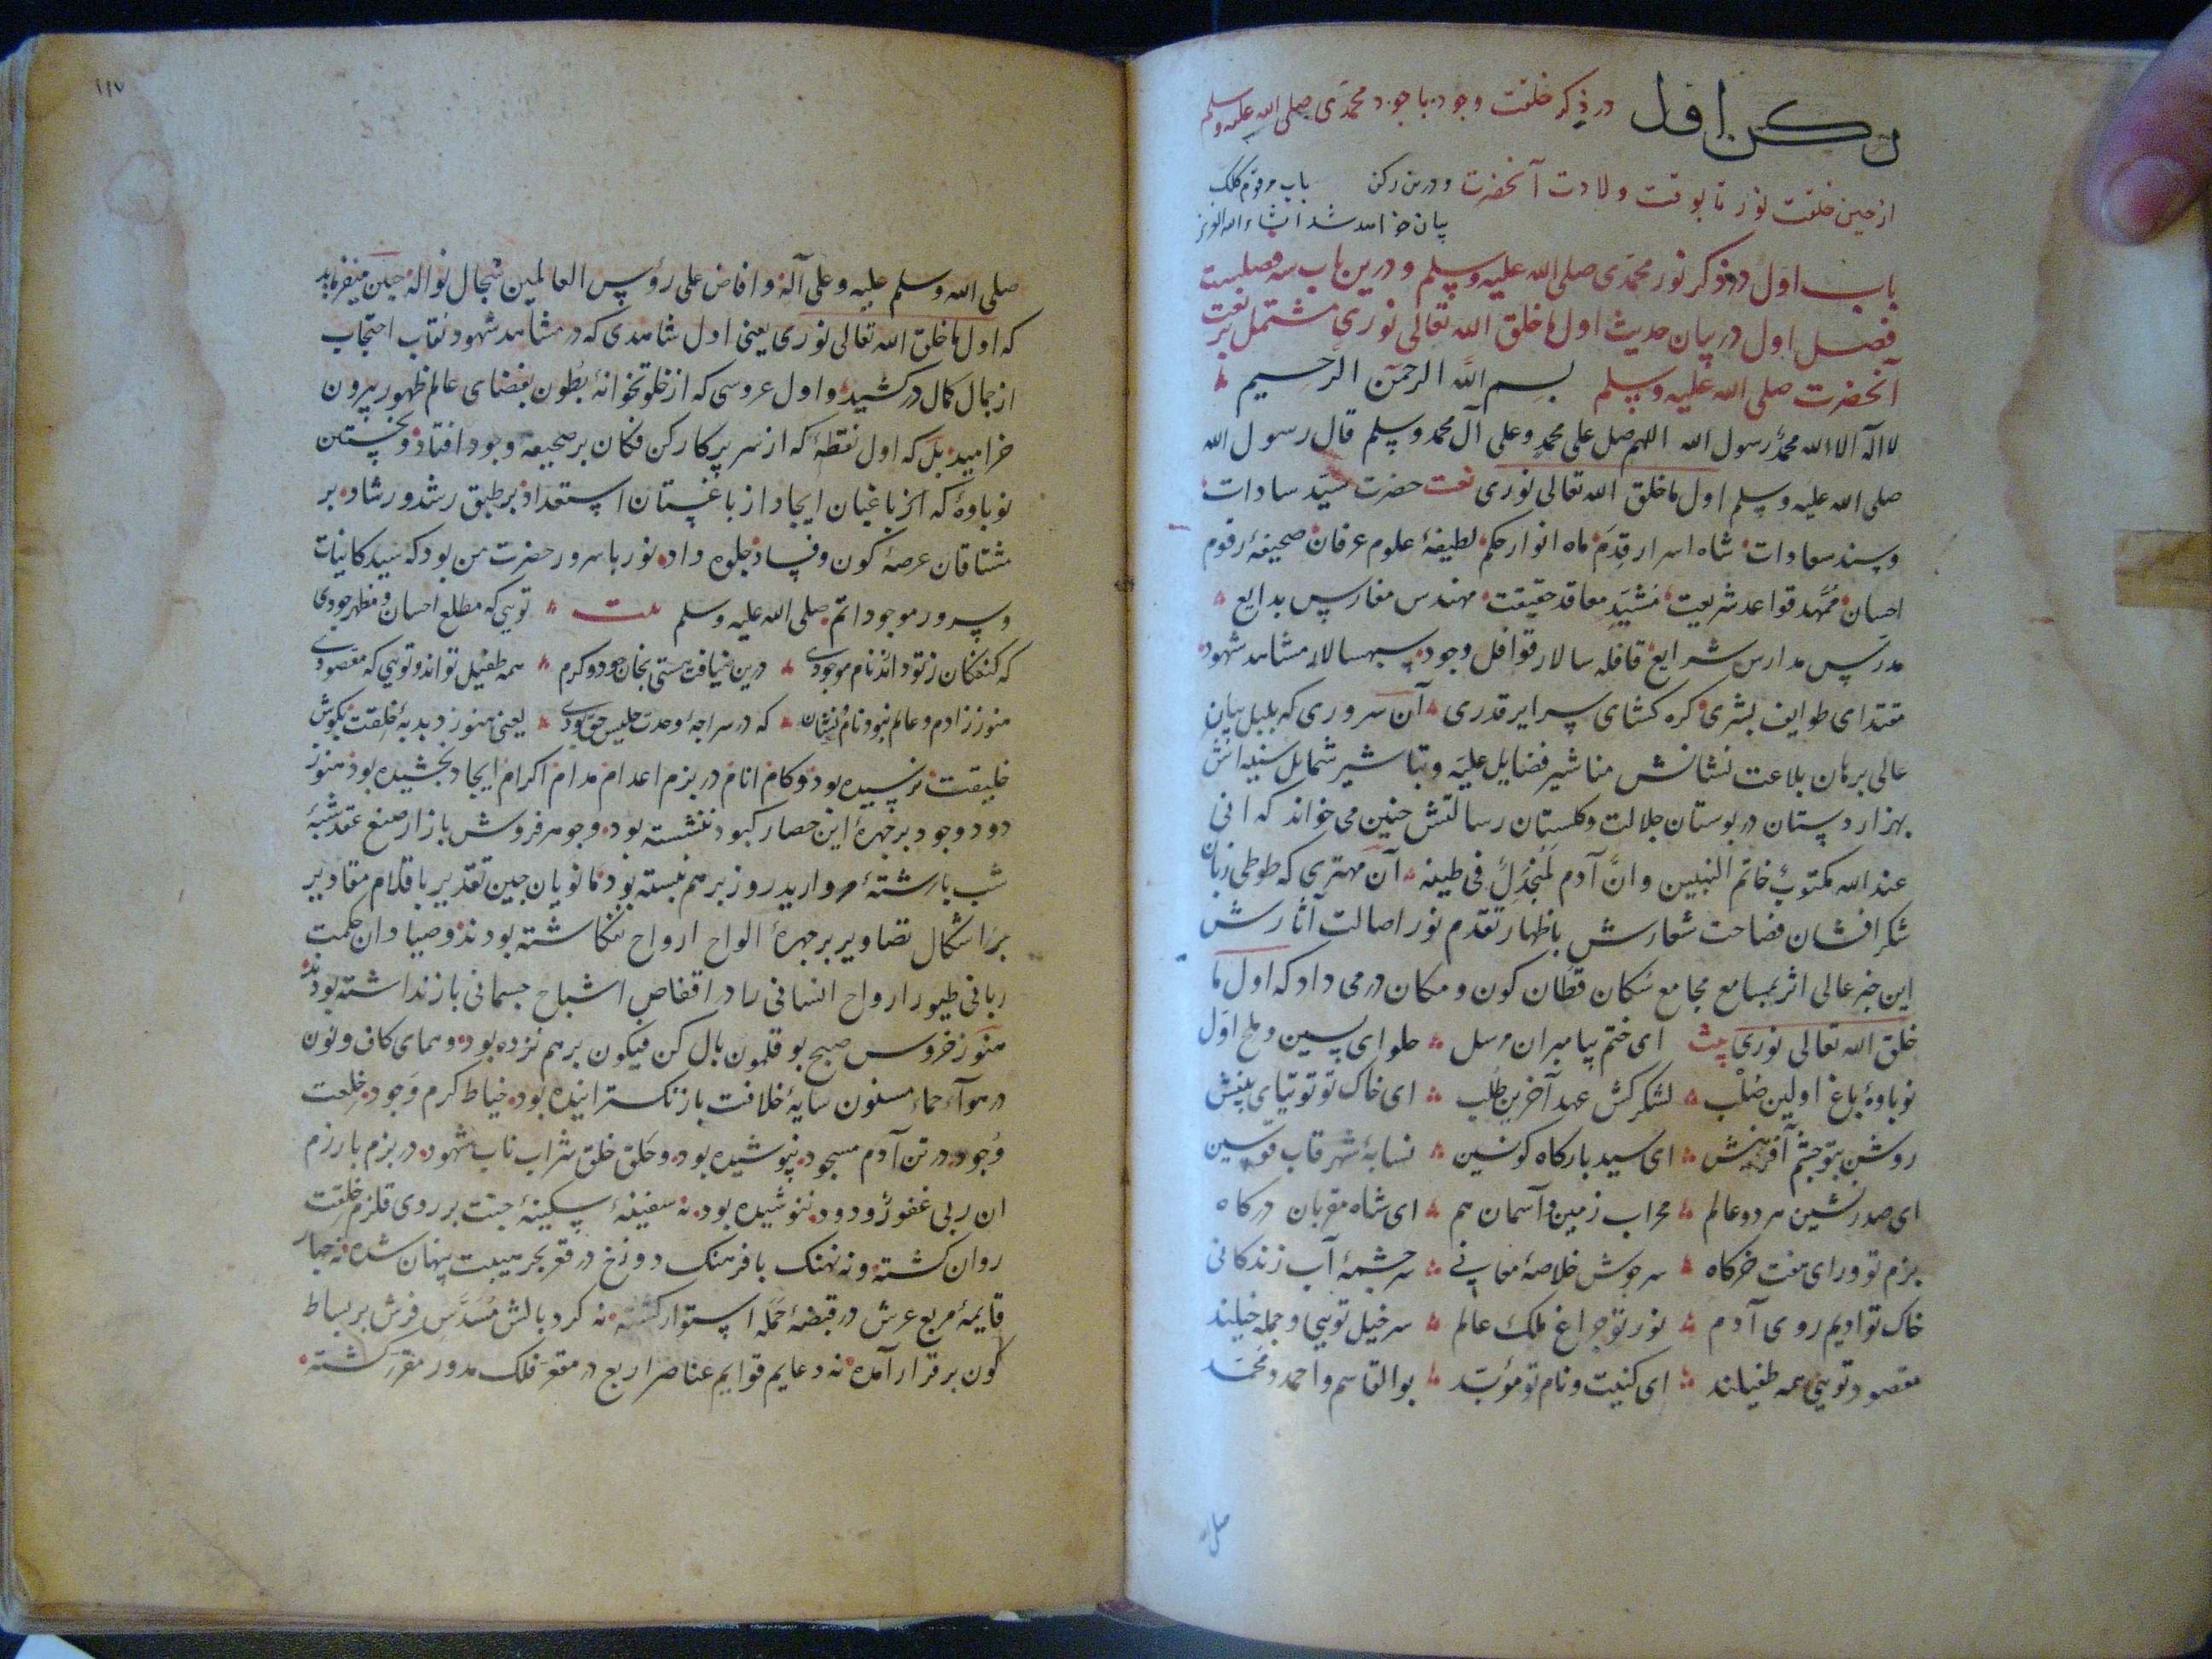 رکن اول در ذکر خلقت وجود باجود محمدی صلی الله علیه وسلم
از حین خلقت نور تا بوقت ولادت آنحضرت و درین رکن باب مرقوم کلک
بیان خواهد شد انشاء الله العزیز
باب اول در ذکر نور محمدی صلی الله علیه وسلم و درین باب سه فصلست
فصل اول در بیان حدیث اول ما خلق الله تعالی نوری مشتمل بر نعت
آنحضرت صلی الله علیه وسلم بسم الله الرحمن الرحیم
لا اله الا الله محمد رسول الله اللهم صل علی محمد وعلی آل محمد وسلم قال رسول الله
صلی الله علیه وسلم اول ما خلق الله تعالی نوری نعت حضرت سید سادات
وسند سعادات شاه اسرار قدم ماه انوار حکم لطیفهٔ علوم عرفان صحیفهٔ رقوم
احسان ممهد قواعد شریعت مشید معاقد حقیقت مهندس مغارس بدایع
مدرس مدارس شرایع قافله سالار قوافل وجود سپهسالار مشاهد شهود
مقتدای طوایف بشری کره کشای سرایر قدری آن سروری که بلبل بیان
عالی برهان بلاغت نشانش مناشیر فضایل علیه و تباشیر شمایل سنیه اش
بهزار دستان در بوستان جلالت و کلستان رسالتش چنین می خواند که انی
عند الله مکتوب خاتم النبیین وان آدم لمنجدل فی طینه آن مهتری که طوطی زبان
شکرافشان فصاحت شعارش باظهار تقدم نور اصالت آثارش
این خبر عالی اثر بمسامع مجامع سکان قطان کون و مکان در می داد که اول ما
خلق الله تعالی نوری بیت ای ختم پیامبران مرسل حلوای پسین و ملح اول
نوباوهٔ باغ اولین صلب لشکرکش عهد آخرین طلب ای خاک تو توتیای بینش
روشن بتو چشم آفرینش ای سید بارکاه کونین نسابهٔ شهر قاب قوسین
ای صدرنشین هر دو عالم محراب زمین و آسمان هم ای شاه مقربان درکاه
بزم تو ورای هفت خرکاه سرجوش خلاصهٔ معانی سرچشمهٔ آب زندکانی
خاک تو ادیم روی آدم نور تو چراغ ملک عالم سرخیل تویی و جمله خیلند
مقصود تویی همه طفیلند ای کنیت و نام تو مؤبد بوالقاسم و احمد و محمد
۱۱۷
صلی الله وسلم علیه وعلی آله وافاض علی رؤس العالمین سجال نواله چنین میفرماید
که اول ما خلق الله تعالی نوری یعنی اول شاهدی که در مشاهد شهود نقاب احتجاب
از جمال کمال درکشید و اول عروسی که از خلوتخوانهٔ بطون بفضای عالم ظهور بیرون
خرامید بل که اول نقطهٔ که از سر پرکار کن فکان بر صحیفه وجود افتاد و نخستین
نوباوهٔ که از باغبان ایجاد از باغستان استعداد بر طبق رشد و رشاد بر
مشتاقان عرصهٔ کون و فساد جلوه داد نور با سرور حضرت من بود که سید کاینات
و سرور موجوداتم صلی الله علیه وسلم بیت تویی که مطلع احسان و مظهر جودی
که کنفکان ز تو دارند نام موجودی درین ضیافت هستی بخان جود و کرم همه طفیل تواند و تویی که مقصودی
هنوز ز آدم و عالم نبود نام و نشان که در سراچهٔ وحدت جلیس حق بودی یعنی هنوز دبدبهٔ خلقت بکوش
خلیقت نرسیده بود و کام انام در بزم اعدام مدام اکرام ایجاد نچشیده بود هنوز
دود وجود بر چهرهٔ این حصار کبود ننشسته بود و جوهر فروش بازار صنع عقد شبهٔ
شب با رشتهٔ مروارید روز بر هم نبسته بود مانویان چین تقدیر باقلام مقادیر
بر اشکال تصاویر بر چهرهٔ الواح ارواح ننکاشته بودند و صیادان حکمت
ربانی طیور ارواح انسانی را در اقفاص اشباح جسمانی بازنداشته بودند
هنوز خروس صبح بوقلمون بال کن فیکون بر هم نزده بود و همای کاف و نون
در هوآء حماء مسنون سایهٔ خلافت باز نکسترانیده بود خیاط کرم و جود خلعت
وجود در تن آدم مسجود نپوشیده بود و حلق خلق شراب ناب شهود در بزم بارزم
ان ربی غفور ودود ننوشیده بود نه سفینهٔ سکینهٔ جنت بر روی قلزم خلقت
روان کشته و نه نهنک با فرهنک دوزخ در قعر بحر هیبت پنهان شده نه چهار
قایمهٔ مربع عرش در قبضهٔ حمله استوار کشته نه کرد بالش مسدس فرش بر بساط
کون برقرار آمده نه دعایم قوایم عناصر اربع در مقعر فلک مدور مقرر کشته